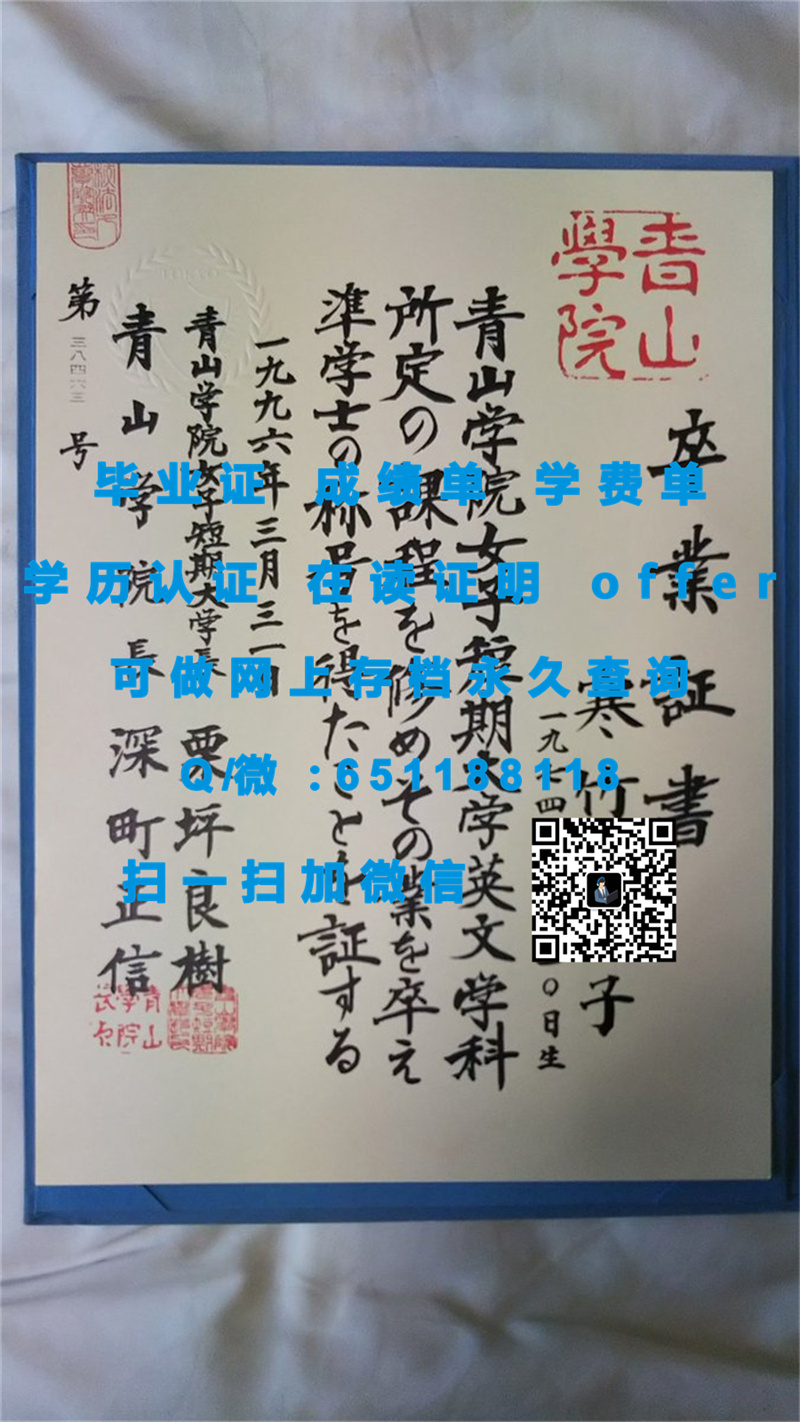 青山
學院
卒業証書
寒竹
子
一九七四
〇日生
青山学院女子短期大学英文学科
所定の課程を修めその業を卒え
準学士の称号を得たことを証する
一九九六年三月三一日
青山学院女子短期大学長 栗坪良樹
青山学院長 深町正信
第三八四六三号
毕业证 成绩单 学费单
学历认证 在读证明 offer
可做网上存档永久查询
Q/微:651188118
扫一扫加微信